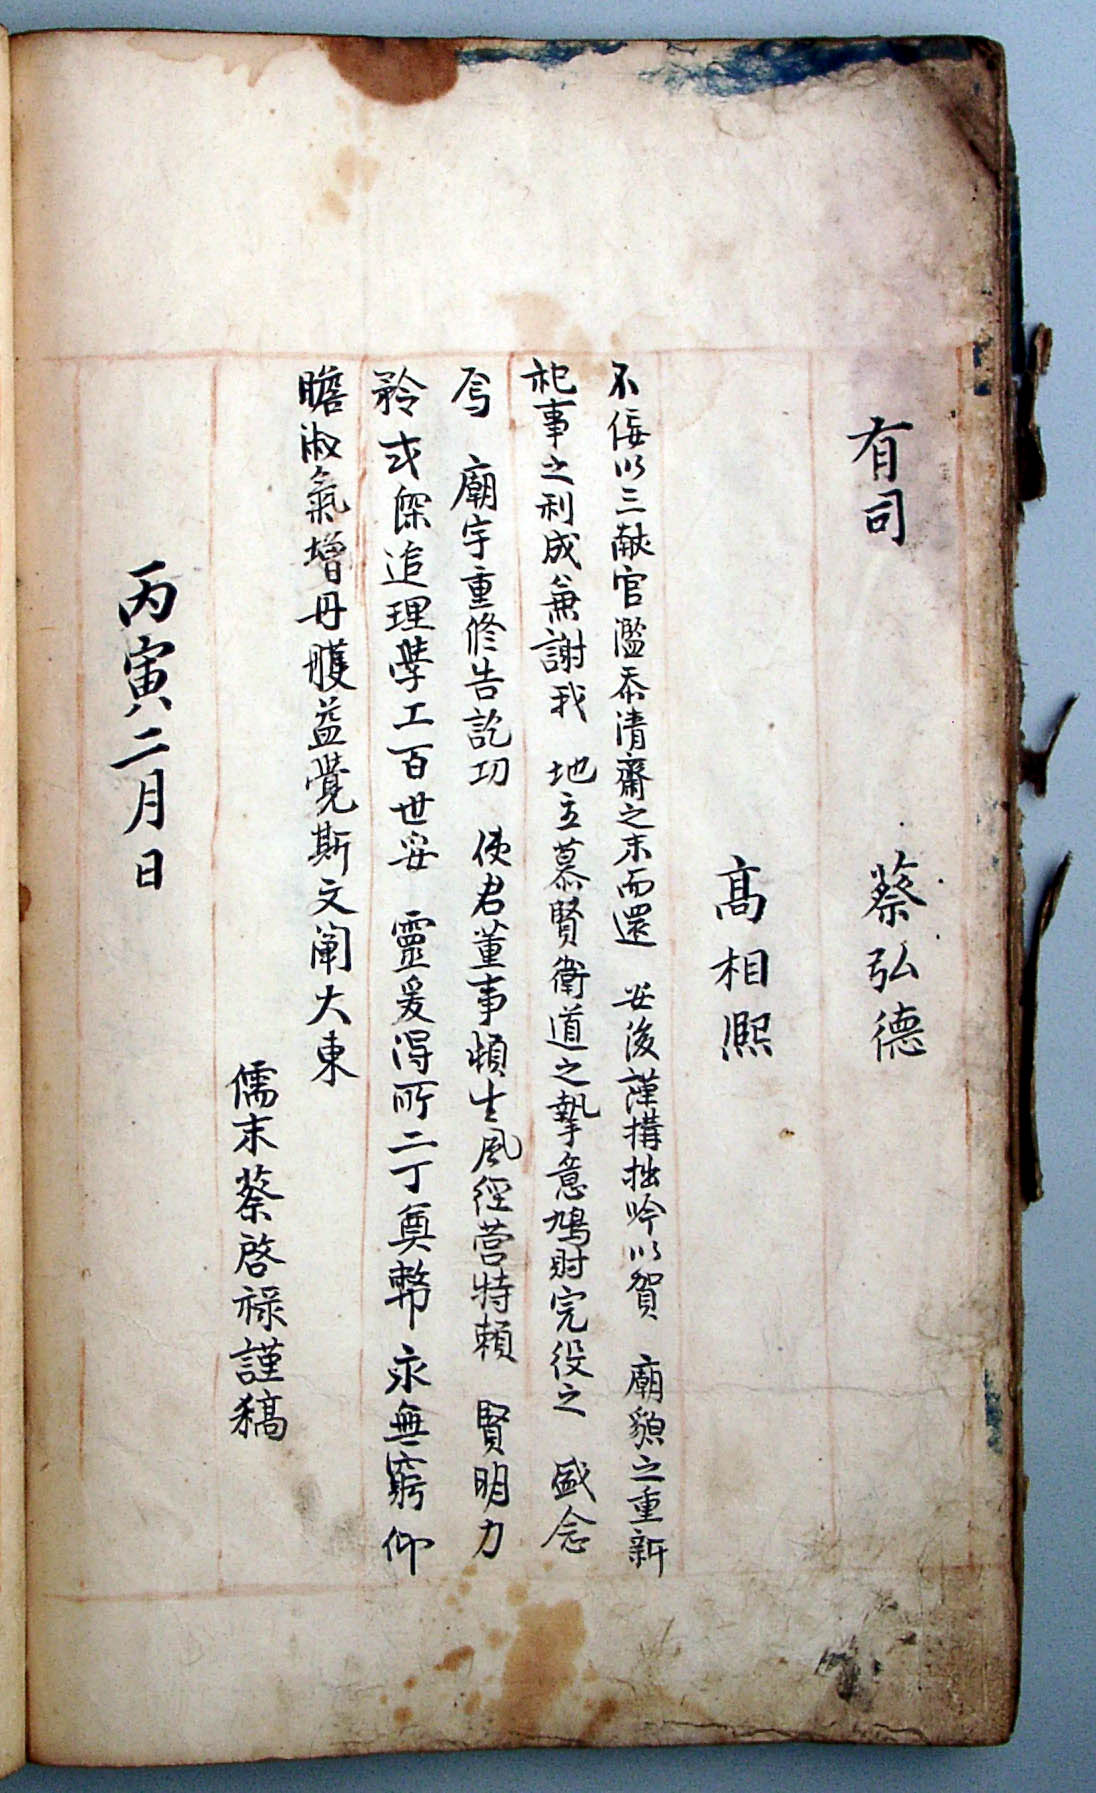 有司 蔡弘德
高相熙
不佞以三献官濫忝清齋之末而還 安後謹搆拙吟以賀 廟貌之重新
祀事之利成兼謝我 地主慕賢衛道之摯意鳩財完役之 盛念
焉 廟宇重修告訖功 使君董事頓生風經营特賴 賢明力
矜式深追理學工百世妥 靈爰得所二丁奠幣永無窮仰
瞻淑氣增丹雘益覺斯文闡大東
儒末蔡啓祿謹稿
丙寅二月日